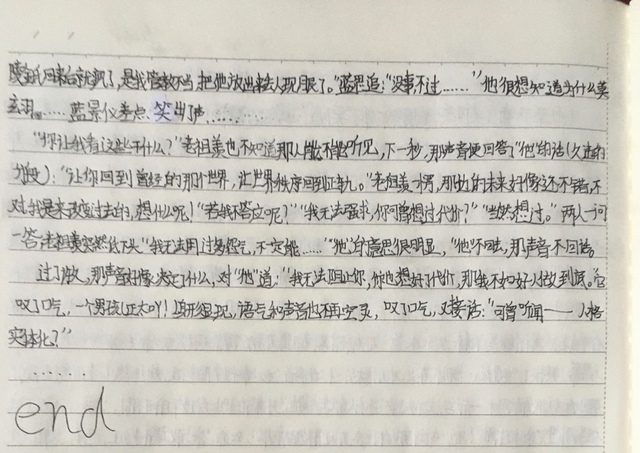 后就疯了,是我管教不当,把他放出来丢人现眼了。”蓝思追:“没事不过……”他很想知道为什么莫
玄羽。……蓝景仪差点笑出声……
“你让我看这些干什么?”老祖羡也不知道那人能不能听见,下一秒,那声音便回答了“他”的话(久违的
):“让你回到曾经的那个世界,让世界秩序回到正轨。”老祖羡一愣,那他的未来好像还不错,不
对我是来改变过去的,想什么呢!“若我不答应呢?”“我无法强求,你可曾想过代价?”“当然想过。”两人一问
一答,老祖羡突然低下头“我无法用过多怨气,不定能……”“他”的意思很明显,“他”不回去,那声音不回话。
过了很久,那声音好像决定了什么,对“他”道:“我无法阻止你,你也想好了代价,那我不如好人做到底。”它
叹了口气,一个男孩(正太吖!)身形出现,语气和声音也不再空灵,叹了口气,又接话:“可曾听闻——人格
实体化?”
……
end